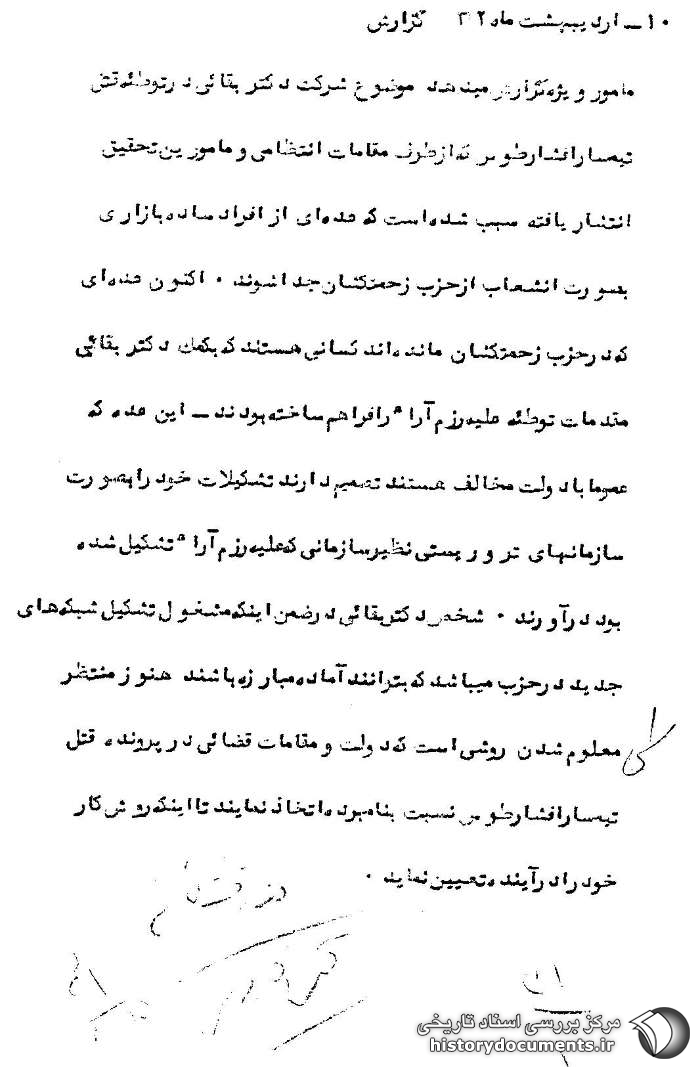 ۱۰ـ اردیبهشت ماه ۳۲ گزارش
مامور ویژه گزارش میدهد موضوع شرکت دکتر بقائی در توطئه قتل
تیمسار افشارطوس که از طرف مقامات انتظامی و مامورین تحقیق
انتشار یافته سبب شده است که عده‌ای از افراد ساده بازاری
بصورت انشعاب از حزب زحمتکشان جدا شوند ۰ اکنون عده‌ای
که در حزب زحمتکشان مانده‌اند کسانی هستند که بکمک دکتر بقائی
مقدمات توطئه علیه رزم آراء را فراهم ساخته بودند ـ این عده که
عموما با دولت مخالف هستند تصمیم دارند تشکیلات خود را بصورت
سازمانهای تروریستی نظیر سازمانی که علیه رزم آراء تشکیل شده
بود درآورند ۰ شخص دکتر بقائی در ضمن اینکه مشغول تشکیل شبکه‌های
جدید در حزب میباشد که بتوانند آماده مبارزه باشند هنوز منتظر
معلوم شدن روشی است که دولت و مقامات قضائی در پرونده قتل
تیمسار افشارطوس نسبت بنامبرده اتخاذ نمایند تا اینکه روش کار
خود را در آینده تعیین نماید ۰
مرکز بررسی اسناد تاریخی
historydocuments.ir